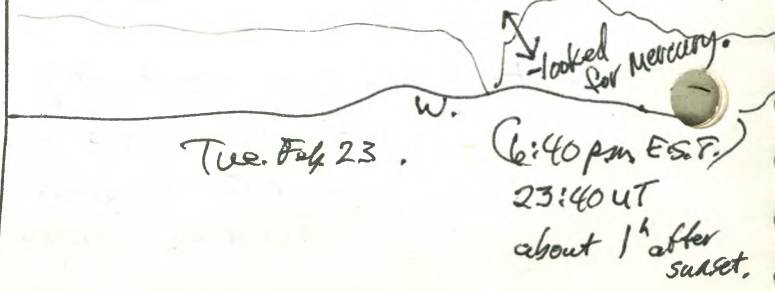 -looked
for Mercury.
W.
Tue. Feb 23.
(6:40 pm E.S.T.)
23:40 UT
about 1h after
sunset.